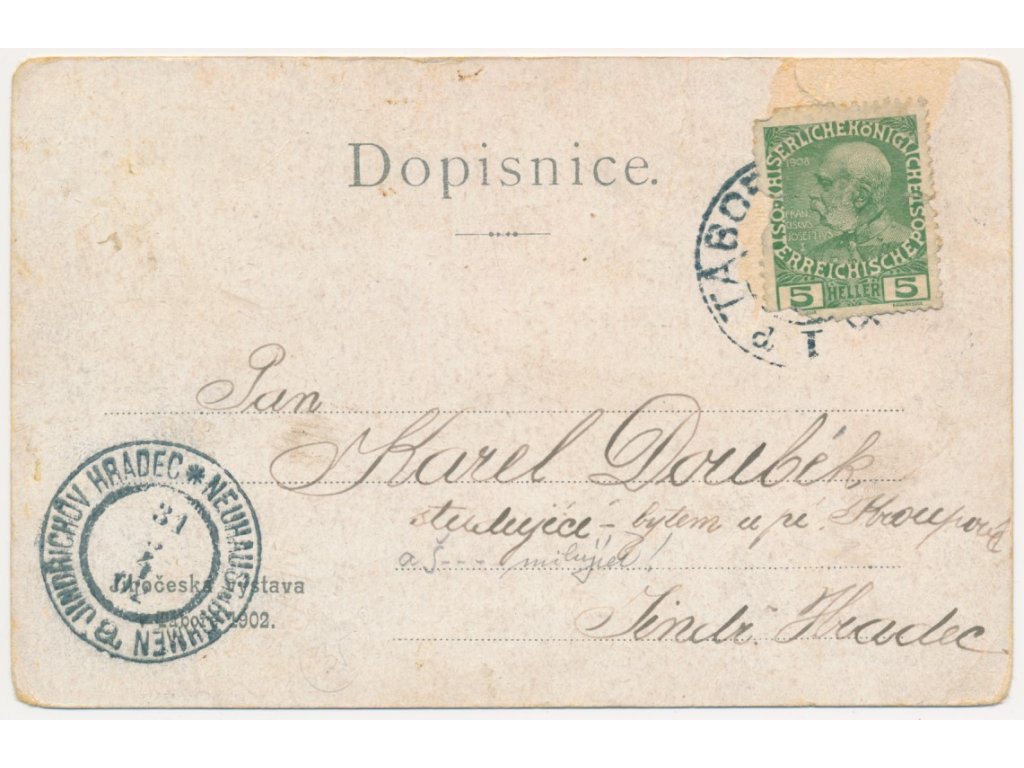 Dopisnice.
KAISERLICHE KÖNIGLICHE ÖSTERREICHISCHE POST
1908
FRAN
CISCVS
IOSEPHVS I
5 HELLER 5
TÁBOR
1 a
Pan
Karel Douběk,
studující - bytem u pí. Kroupová
a š--- milující!
Jindř. Hradec
JINDŘICHŮV HRADEC * NEUHAUS BÖHMEN
31
Jihočeská výstava
Tábor 1902.